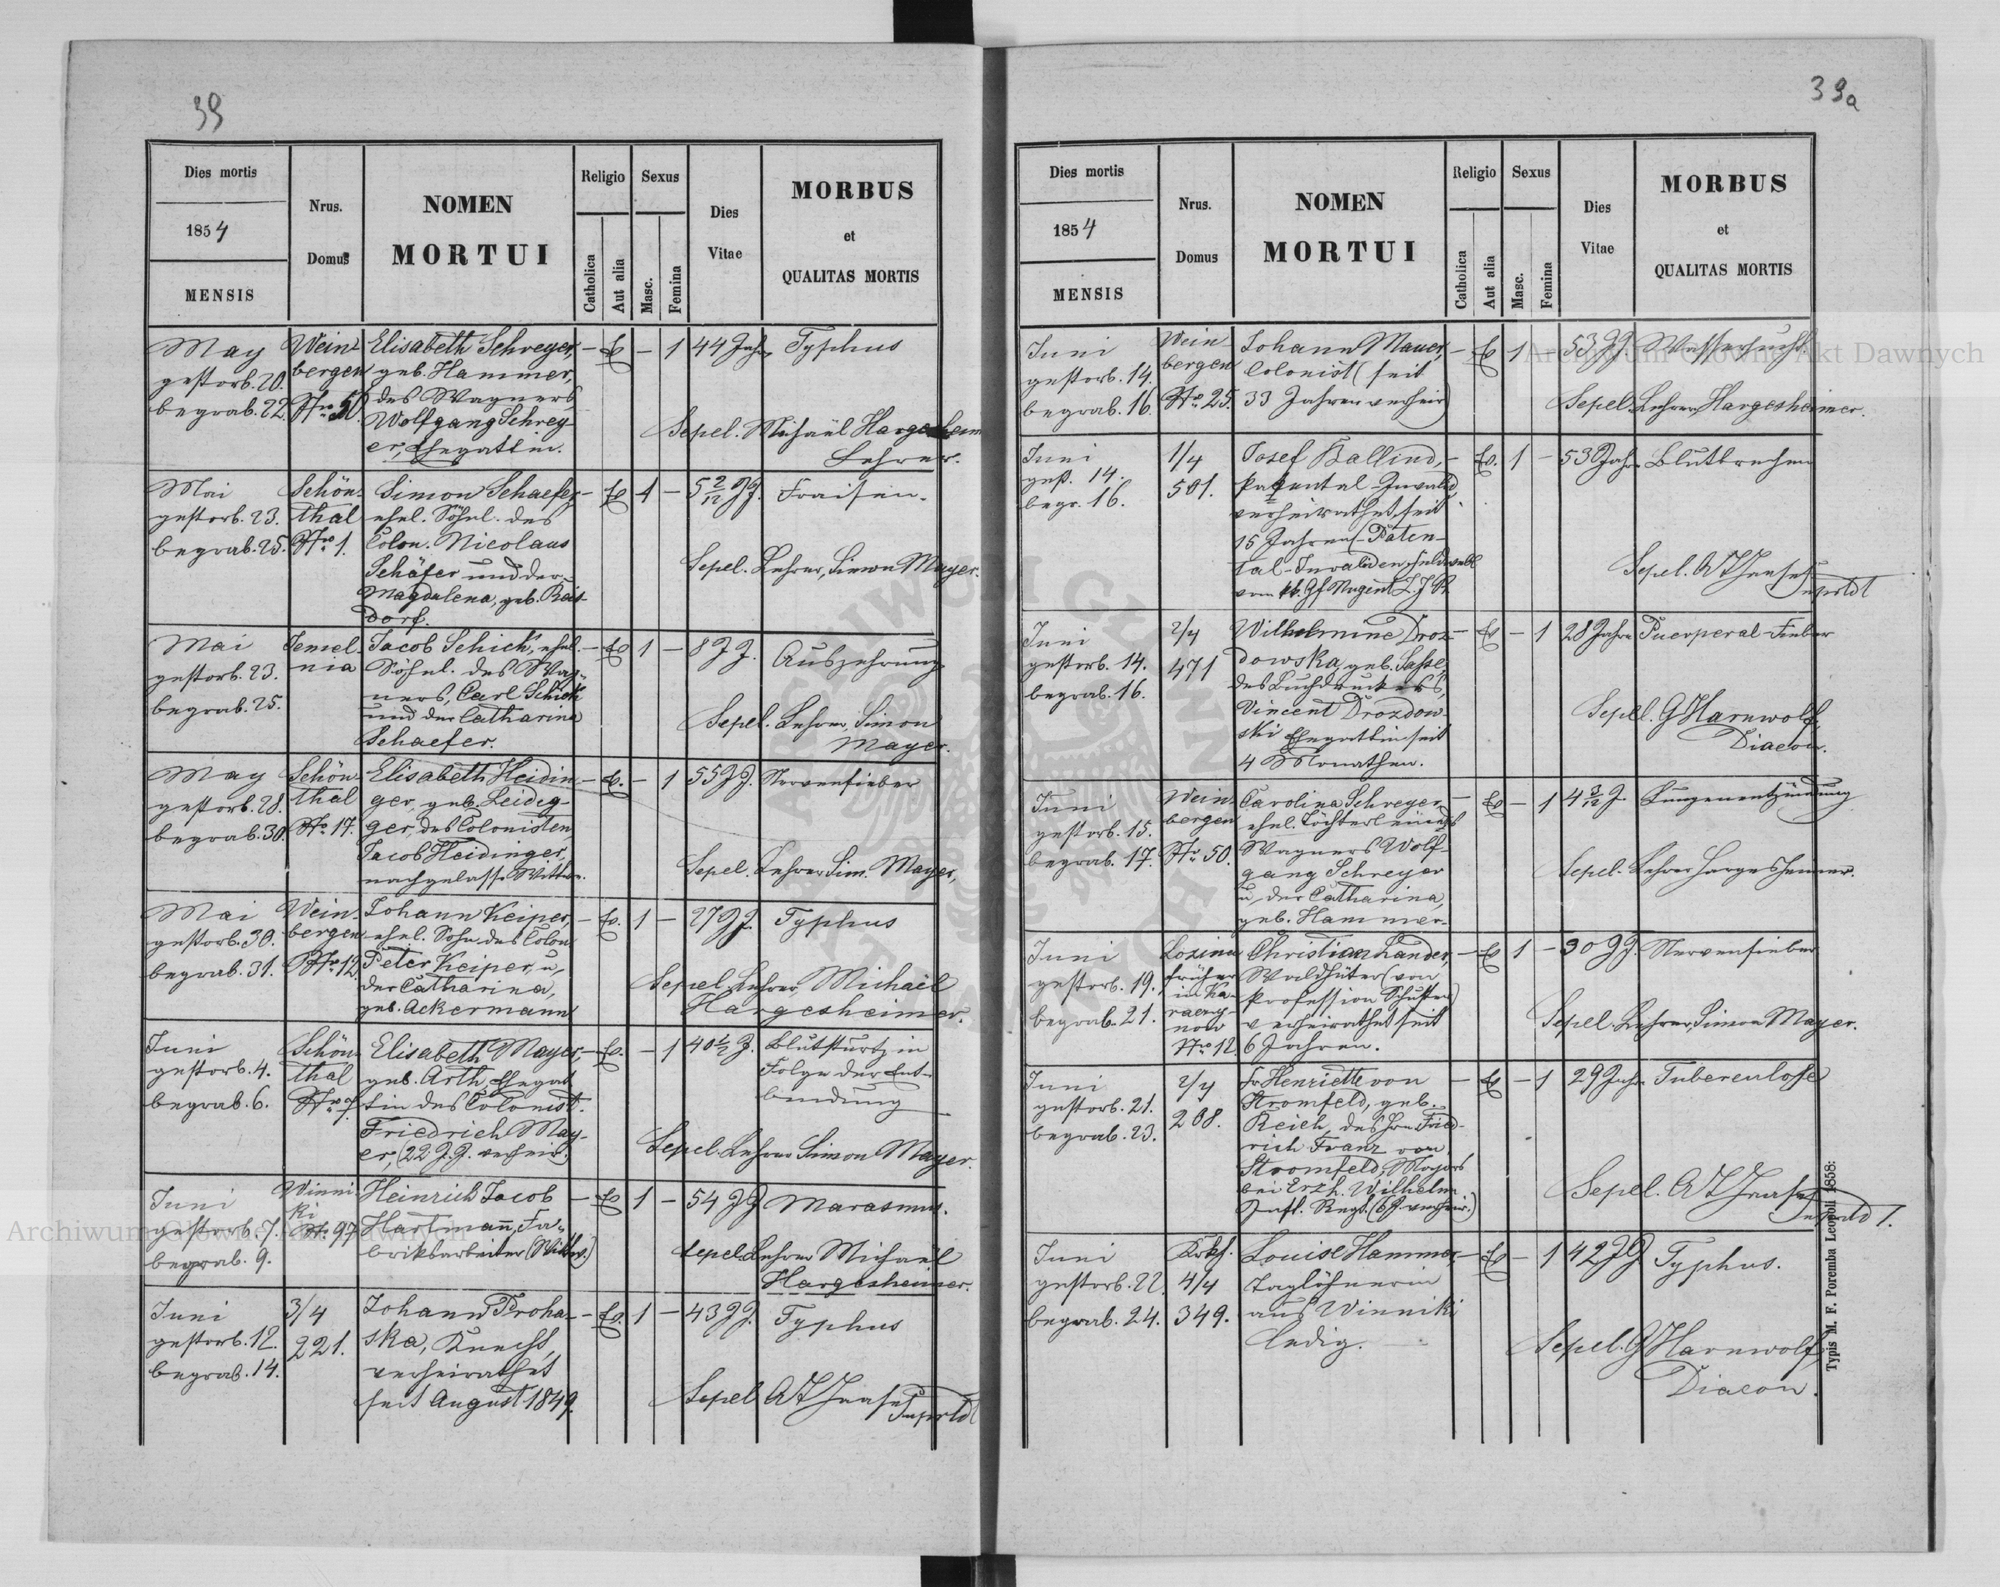 39
Dies mortis
1854
MENSIS
Nrus.
Domus
NOMEN
MORTUI
Religio
Catholica
Aut alia
Sexus
Masc.
Femina
Dies
Vitae
MORBUS
et
QUALITAS MORTIS
May
gestorb. 20.
begrab. 22.
Wein-
bergen
Nro 50.
Elisabeth Schreyer,
geb. Hammer,
des Wagners
Wolfgang Schrey-
er, Ehegattin.
— Ev. — 1 44 Jahr Typhus
Sepel. Michaël Hargesheim
Lehrer.
Mai
gestorb. 23.
begrab. 25.
Schön-
thal
Nro 1.
Simon Schaefer,
ehel. Söhnl. des
Colon. Nicolaus
Schäfer und der
Magdalena, geb. Reis-
dorf.
— Ev 1 — 5 2/12 JJ. Fraisen.
Sepel. Lehrer, Simon Mayer.
Mai
gestorb. 23.
begrab. 25.
nia
Jacob Schick, ehel.
Söhnl. des Wag-
ners, Carl Schick
und der Catharina
Schaefer.
— Ev 1 — 8 JJ. Auszehrung
Sepel. Lehrer, Simon
Mayer.
May
gestorb. 28.
begrab. 30.
Schön-
thal
Nro 17.
Elisabeth Heidin-
ger, geb. Leidig-
ger, des Colonisten
Jacob Heidinger,
nachgelass. Wittwe.
— Ev. — 1 55 JJ. Nervenfieber
Sepel. Lehrer Sim. Mayer,
Mai
gestorb. 30.
begrab. 31.
Wein-
bergen
Nro 12
Johann Keiper,
ehel. Sohn des Colon
Peter Keiper, u,
der Catharina,
geb. Ackermann
— Ev. 1 — 27 JJ. Typhus
Sepel. Lehrer, Michaël
Hargesheimer.
Juni
gestorb. 4.
begrab. 6.
Schön-
thal
Nro 7.
Elisabeth Mayer,
geb. Arth, Ehegat-
tin des Colonist.
Friedrich May-
er, (22 J.J. verheir.)
— Ev. — 1 40 1/2 J. Blutsturtz in
Folge der Ent-
bindung
Sepel. Lehrer Simon Mayer.
Juni
gestorb. 7.
begrab. 9.
Winni-
ki
Nr. 97
Heinrich Jacob
Hartmann, Fa-
briksarbeiter (Wittwr.)
— Ev 1 — 54 JJ Marasmus.
Sepel. Lehrer Michaël
Hargesheimer.
Juni
gestorb. 12.
begrab. 14.
3/4
221.
Johann Proha-
ska, Knecht,
verheirathet
seit August 1849.
— Ev. 1 — 43 JJ. Typhus
Sepel
39a
Dies mortis
1854
MENSIS
Nrus.
Domus
NOMEN
MORTUI
Religio
Catholica
Aut alia
Sexus
Masc.
Femina
Dies
Vitae
MORBUS
et
QUALITAS MORTIS
Juni
gestorb. 14.
begrab. 16.
Wein-
bergen
Nro 25.
Johann Mauer,
Colonist (seit
33 Jahren verheir)
— Ev 1 — 53 JJ. Wassersucht
Sepel. Lehrer Hargesheimer.
Juni
gest. 14.
begr. 16.
1/4
501.
Josef Ballind,
Patental-Invalid
verheirathet seit
15 Jahren (Paten-
tal-Invaliden, Feldwebl
vom kk. Gf Nugent L. J. R.
— Ev. 1 — 53 Jahr Blutbrechen
Sepel.
Juni
gestorb. 14.
begrab. 16.
2/4
471
Wilhelmine Droz-
dowska, geb. Sasse,
des Buchdruckers,
Vincent Drozdow-
ski Ehegattin seit
4 Monathen.
— Ev — 1 28 Jahre Puerperal-Fieber
Sepel. G Harnwolf,
Diacon.
Juni
gestorb. 15.
begrab. 17.
Wein-
bergen
Nr. 50.
Carolina Schreyer
ehel. Töchterl eines
Wagners Wolf-
gang Schreyer
u, der Catharina,
geb. Hammer.
— Ev — 1 4 3/12 J. Lungenentzündung
Sepel. Lehrer Hargesheimer.
Juni
gestorb. 19.
begrab. 21.
Lozina
früher
in Ka-
raczy-
now
Nro 12.
Christian Lander,
Waldhüter (von
Profession Schuster)
verheirathet seit
6 Jahren.
— Ev 1 — 30 JJ. Nervenfieber
Sepel. Lehrer, Simon Mayer.
Juni
gestorb. 21.
begrab. 23.
2/4
208.
Fr Henriette von
Stromfeld, geb.
Reich, des Hrn Fried-
rich Franz von
Stromfeld, Majors
bei Erzh. Wilhelm
Inft. Regt. (6 J. verheir.)
— Ev — 1 29 Jahr Tuberculose
Sepel.
Juni
gestorb. 22.
begrab. 24.
4/4
349.
Louise Hammer,
Taglöhnerin
aus Winniki
ledig.
— Ev — 1 42 JJ Typhus.
Sepel. G Harnwolf,
Diacon.
Typis M. F. Poremba Leopoli 1858:
Archiwum Główne Akt Dawnych
Archiwum Główne Akt Dawnych
ARCHIWUM GŁÓWNE AKT DAWNYCH